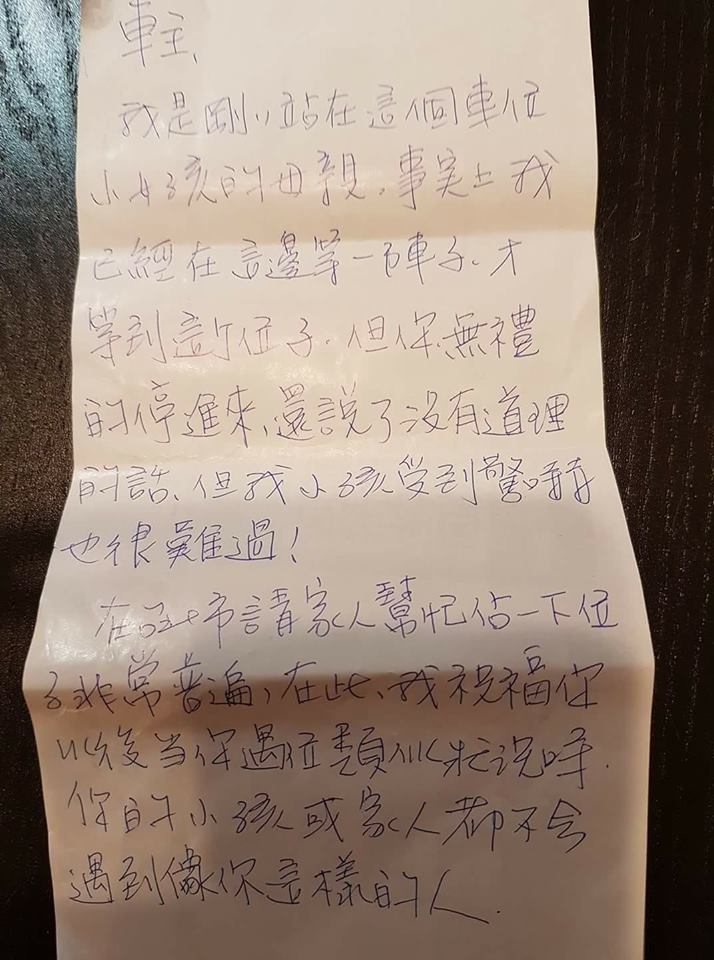 車主、
我是剛剛站在這個車位
小女孩的母親。事実上我
已經在這邊等一陣子、才
等到這个位子. 但你無禮
的停進來、還說了沒有道理
的話、但我小孩受到驚嚇
也很難過！
在台北市請家人幫忙佔一下位
子非常普遍, 在此、我祝福你
以後当你遇到類似狀況時.
你的小孩或家人都不会
遇到像你這樣的人.